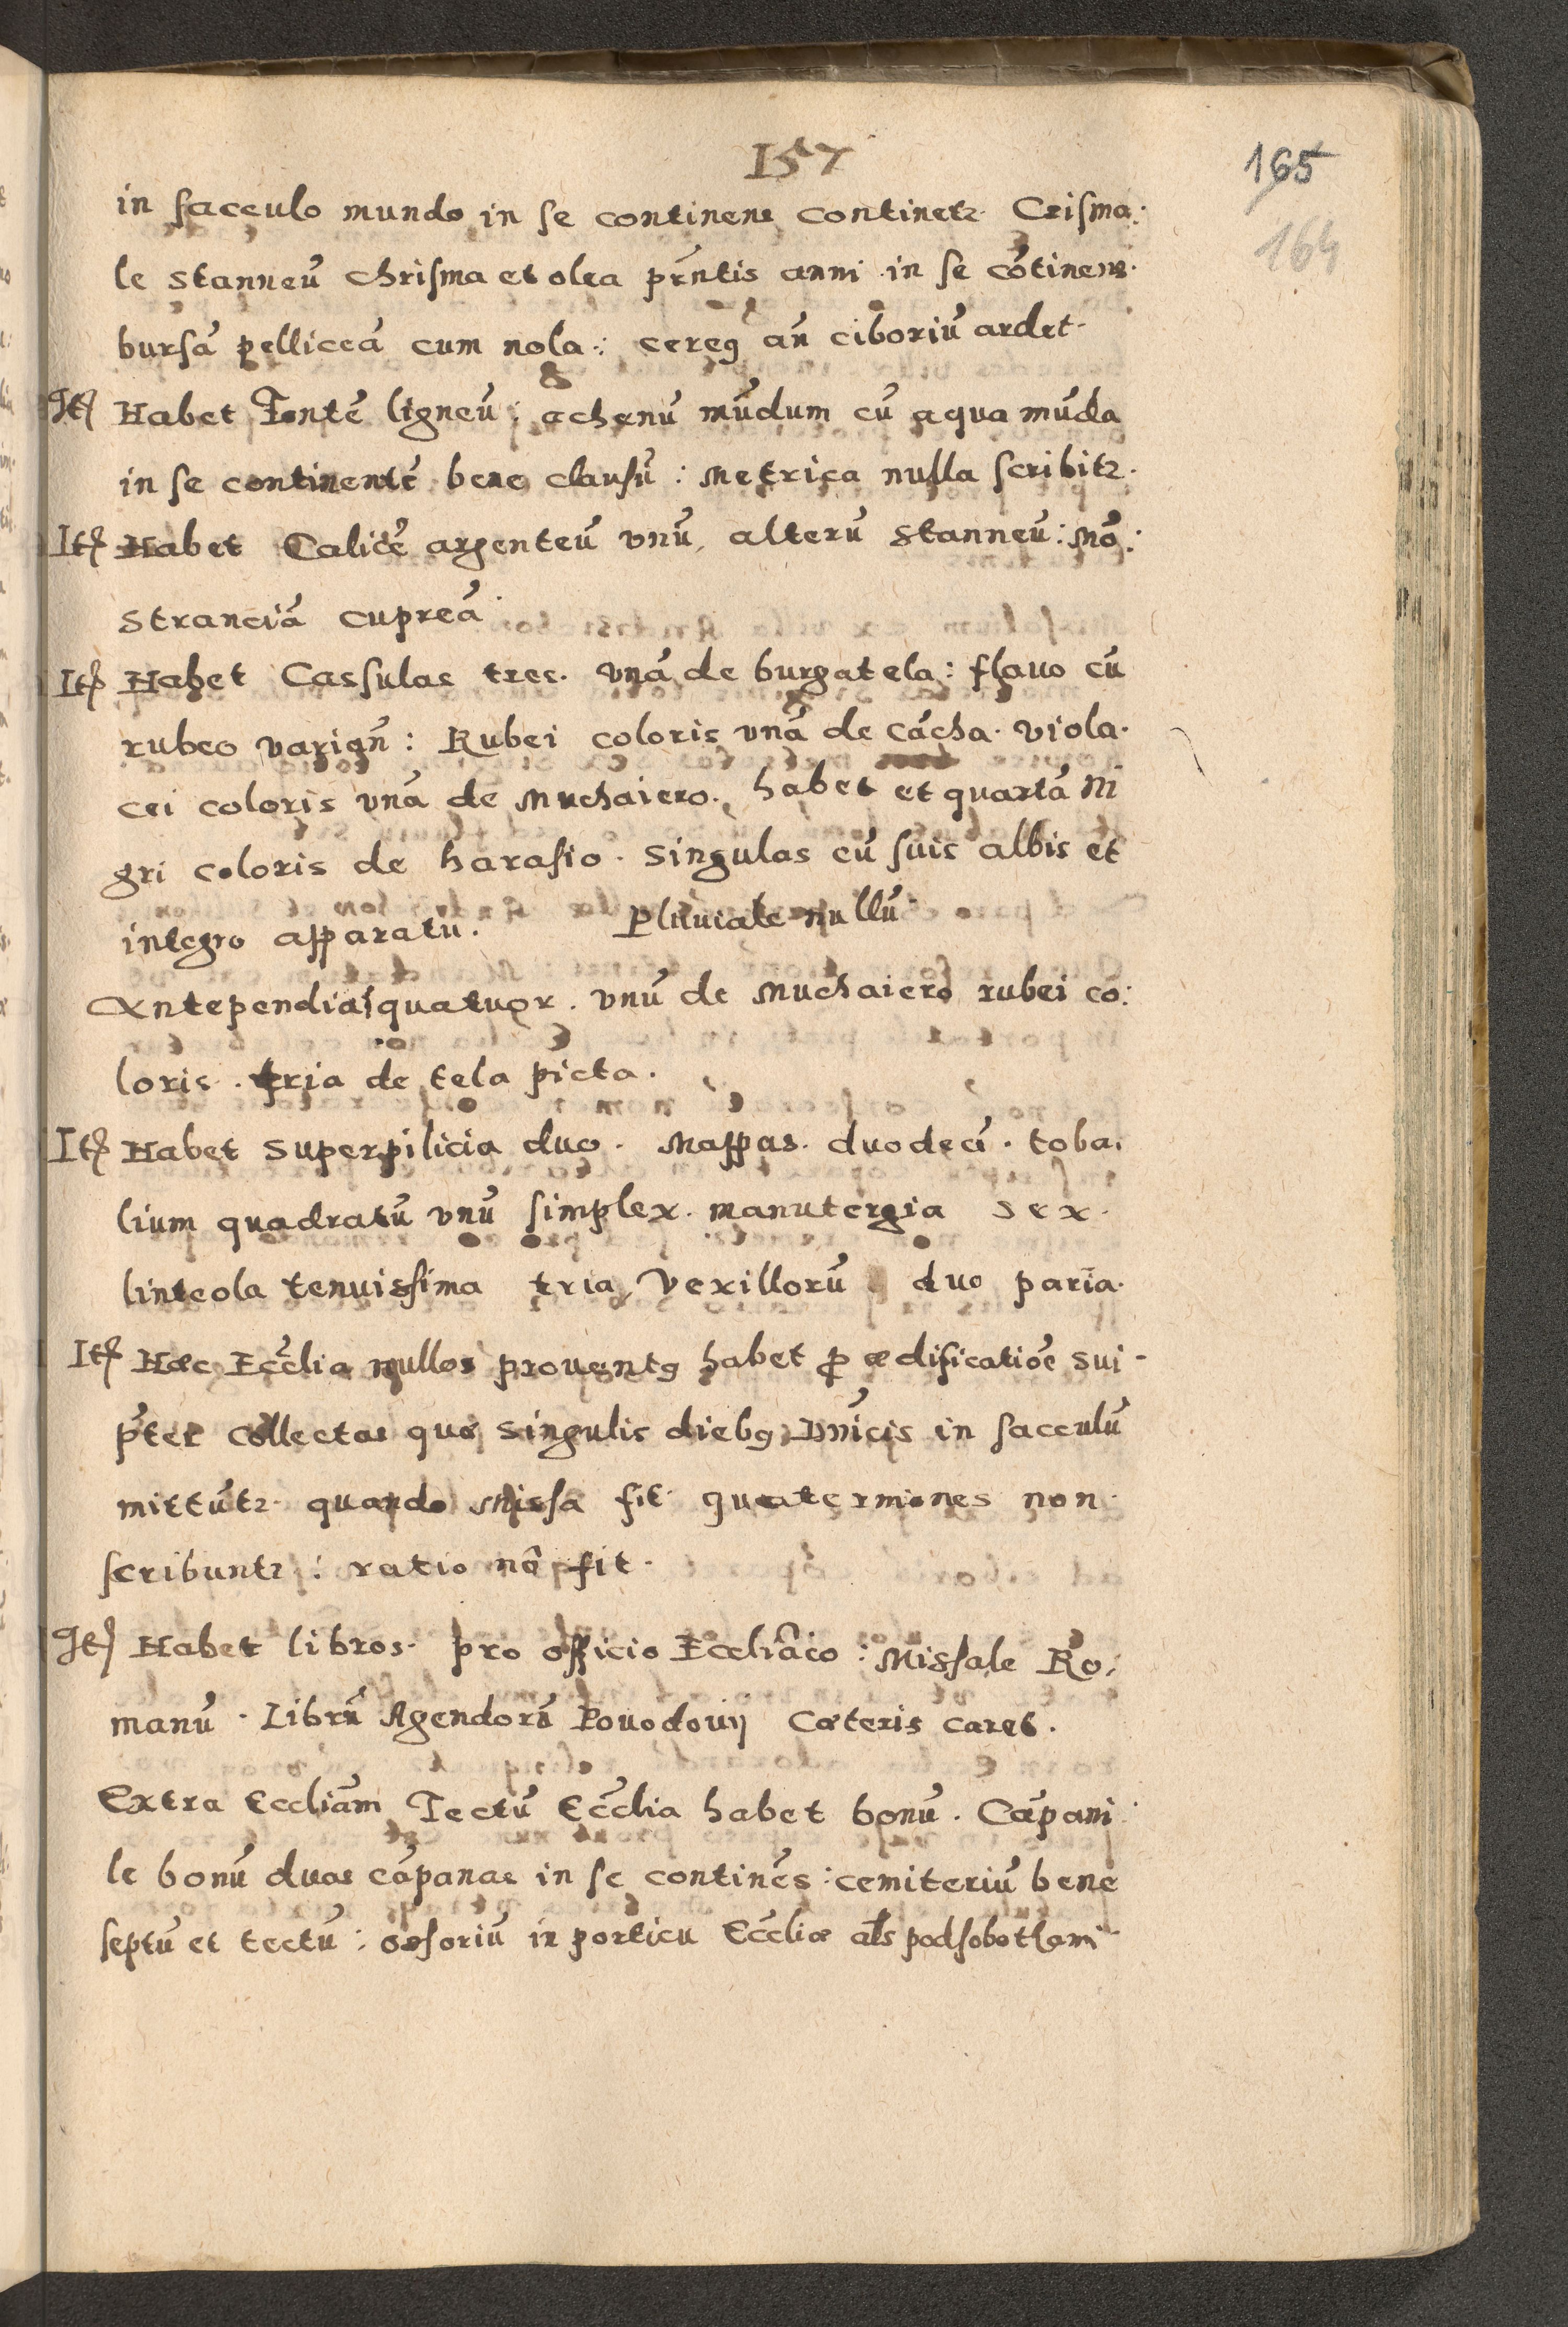 157
165
164
in sacculo mundo in se continens continetr. Crisma:
le stanneū chrisma et olea pn̄tis anni in se cōtinens.
bursā pelliceā cum nola: cereq an̄ ciboriū ardet.
Itē Habet Fontē ligneū: achenū mūdum cū aqua mūda
in se continentē bene clausū: Metrica nulla scribitr.
Itē Habet Calicē argenteū vnū, alterū stanneū: Mō:
stranciā cupreā
Itē Habet Cassulas tres. vnā de burgatela: flauo cū
rubeo varian̄: Rubei coloris vnā de cācha. viola.
cei coloris vnā de Muchaiero. habet et quartā Ni
gri coloris de harasio. singulas cū suis albis et
integro apparatu. Pluuiale nullū
Antependia quatuor. vnū de Muchaiero rubei co:
loris. tria de tela picta.
Itē Habet superpilicia duo. Mappas. duodecī. toba.
lium quadratū vnū simplex. manutergia sex.
linteola tenuissima tria, Vexillorū duo paria.
Itē Haec Eccl̄ia nullos prouentq habet p̱ ædificatiōe sui.
p̄ter collectas quæ singulis diebq Dn̄icis in sacculū
mittūtr. quando Missa fit. quaterniones non.
scribuntr: ratio nō fit.
Itē Habet libros. pro officio Eccliāco: Missale Ro,
manū. Librū Agendorū Pouodouij Cæteris caret.
Extra Eccliām Tectū Eccl̄ia habet bonū. Cāpani
le bonū duas cāpanas in se continēs: cemiteriū bene
septū et tectū: ossoriū in porticu Eccl̄iæ als podsobothami